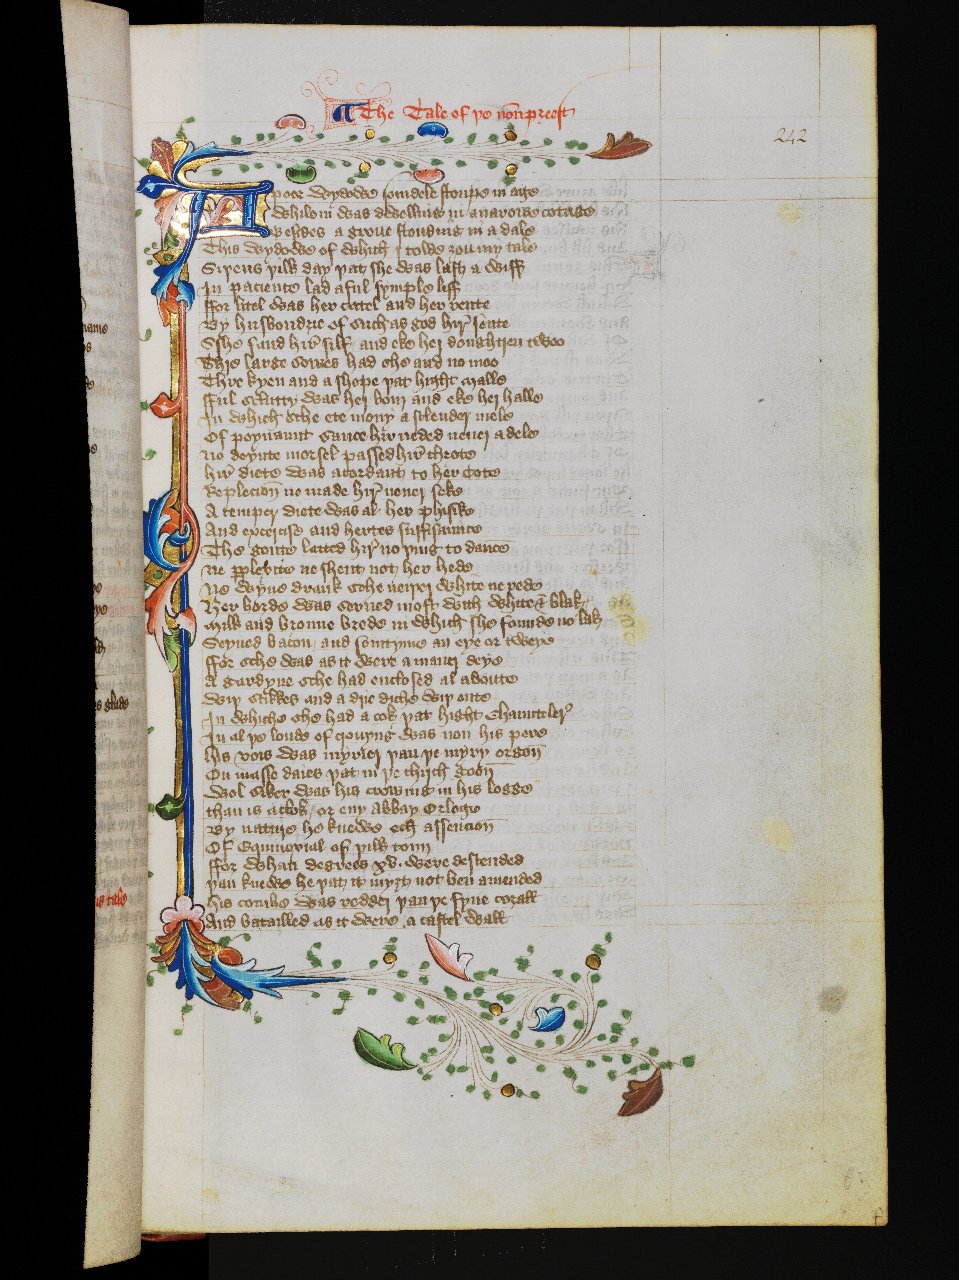 The Tale of þe nonn preest
242
A poor wydowe somdele stoupe in age
Whilom was dwelling in a narowe cotage
Besides a grove stonding in a dale
This wydowe of which I tolde ȝou my tale
Siþens þilk day þat she was last a wiff
In pacience lad a ful symple liff
ffor litel was her catel and her rente
By husbondrie of such as god hir sente
Sche fand hir silf and eke hei doughtren twoo
Thre large sowes had she and no moo
Thre kyen and a shepe þat hight Malle
fful sooty was hei bour and eke hei halle
In which sche ete mony a sclender mele
Of poynaunt sauce hir neded never a dele
No deynte morsel passed hir throte
hir diete was acordant to her cote
Replecion ne made hir never seke
A temper diete was al her phisike
And exercise and hertes suffisaunce
The goute letted hir no þing to dance
ne poplexie ne shent not her hede
No wyne drank sche neiþer white ne rede
Her borde was served most with white & blak
Milk and broune brede in which she founde no lak
Seyned bacon and somtyme an eye or tweye
ffor sche was as it were a maner deye
A gardyne sche had enclosed al aboute
Wiþ stikkes and a drie diche wiþ oute
In whiche she had a cok þat hight Chauntcler
In al þe londe of crowyng was non his pere
his vois was myrier þan þe myry orgon
On masse daies þat in þe chirch goon
Wol siker was his crowing in his logge
than is a clok or eny abbay orloge
By nature he knewe ech assencion
Of Equinoxial of þilk toun
ffor whan degrees xv. were descended
þan knewe he þat it myȝt not ben amended
His combe was redder þan þe fyne corall
And batailled as it were a castel wall